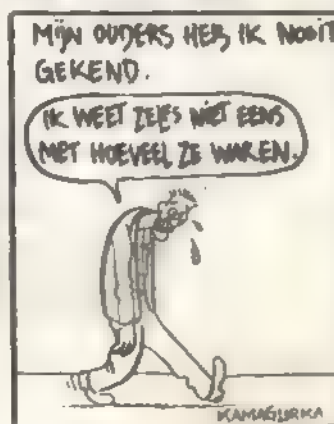 MIJN OUDERS HEB IK NOOIT
GEKEND.
IK WEET ZELFS NIET EENS
MET HOEVEEL ZE WAREN.
KAMAGURKA